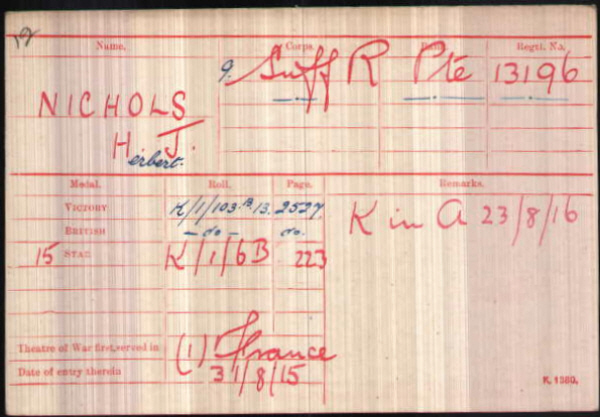 12
Name. Corps. Rank. Regtl. No.
9. Suff R Pte 13196
NICHOLS
H. J.
erbert.
Medal. Roll. Page. Remarks.
VICTORY K/1/103.B.13. 2527. K in A 23/8/16
BRITISH - do - do.
15 STAR K/1/6B 223
Theatre of War first served in (1) France
Date of entry therein 31/8/15
K. 1380.